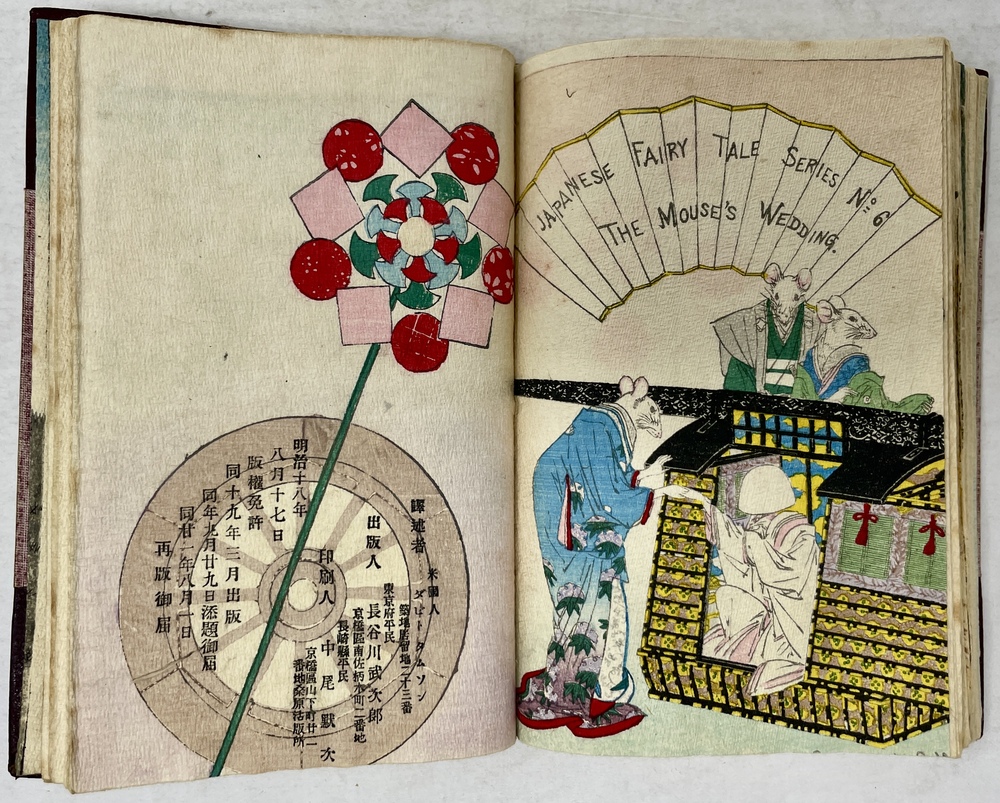 譯述者
米國人
築地居留地二十三番
ダビド タムソン
出版人
東京府平民
長谷川武次郎
京橋區南佐柄木町二番地
印刷人
長崎縣平民
中尾黙次
京橋區山下町廿二
番地桑原活版所
明治十八年
八月十七日
版權免許
同十九年三月出版
同年九月廿九日添題御届
同廿一年八月一日
再版御届
JAPANESE FAIRY TALE SERIES No. 6
THE MOUSE'S WEDDING.